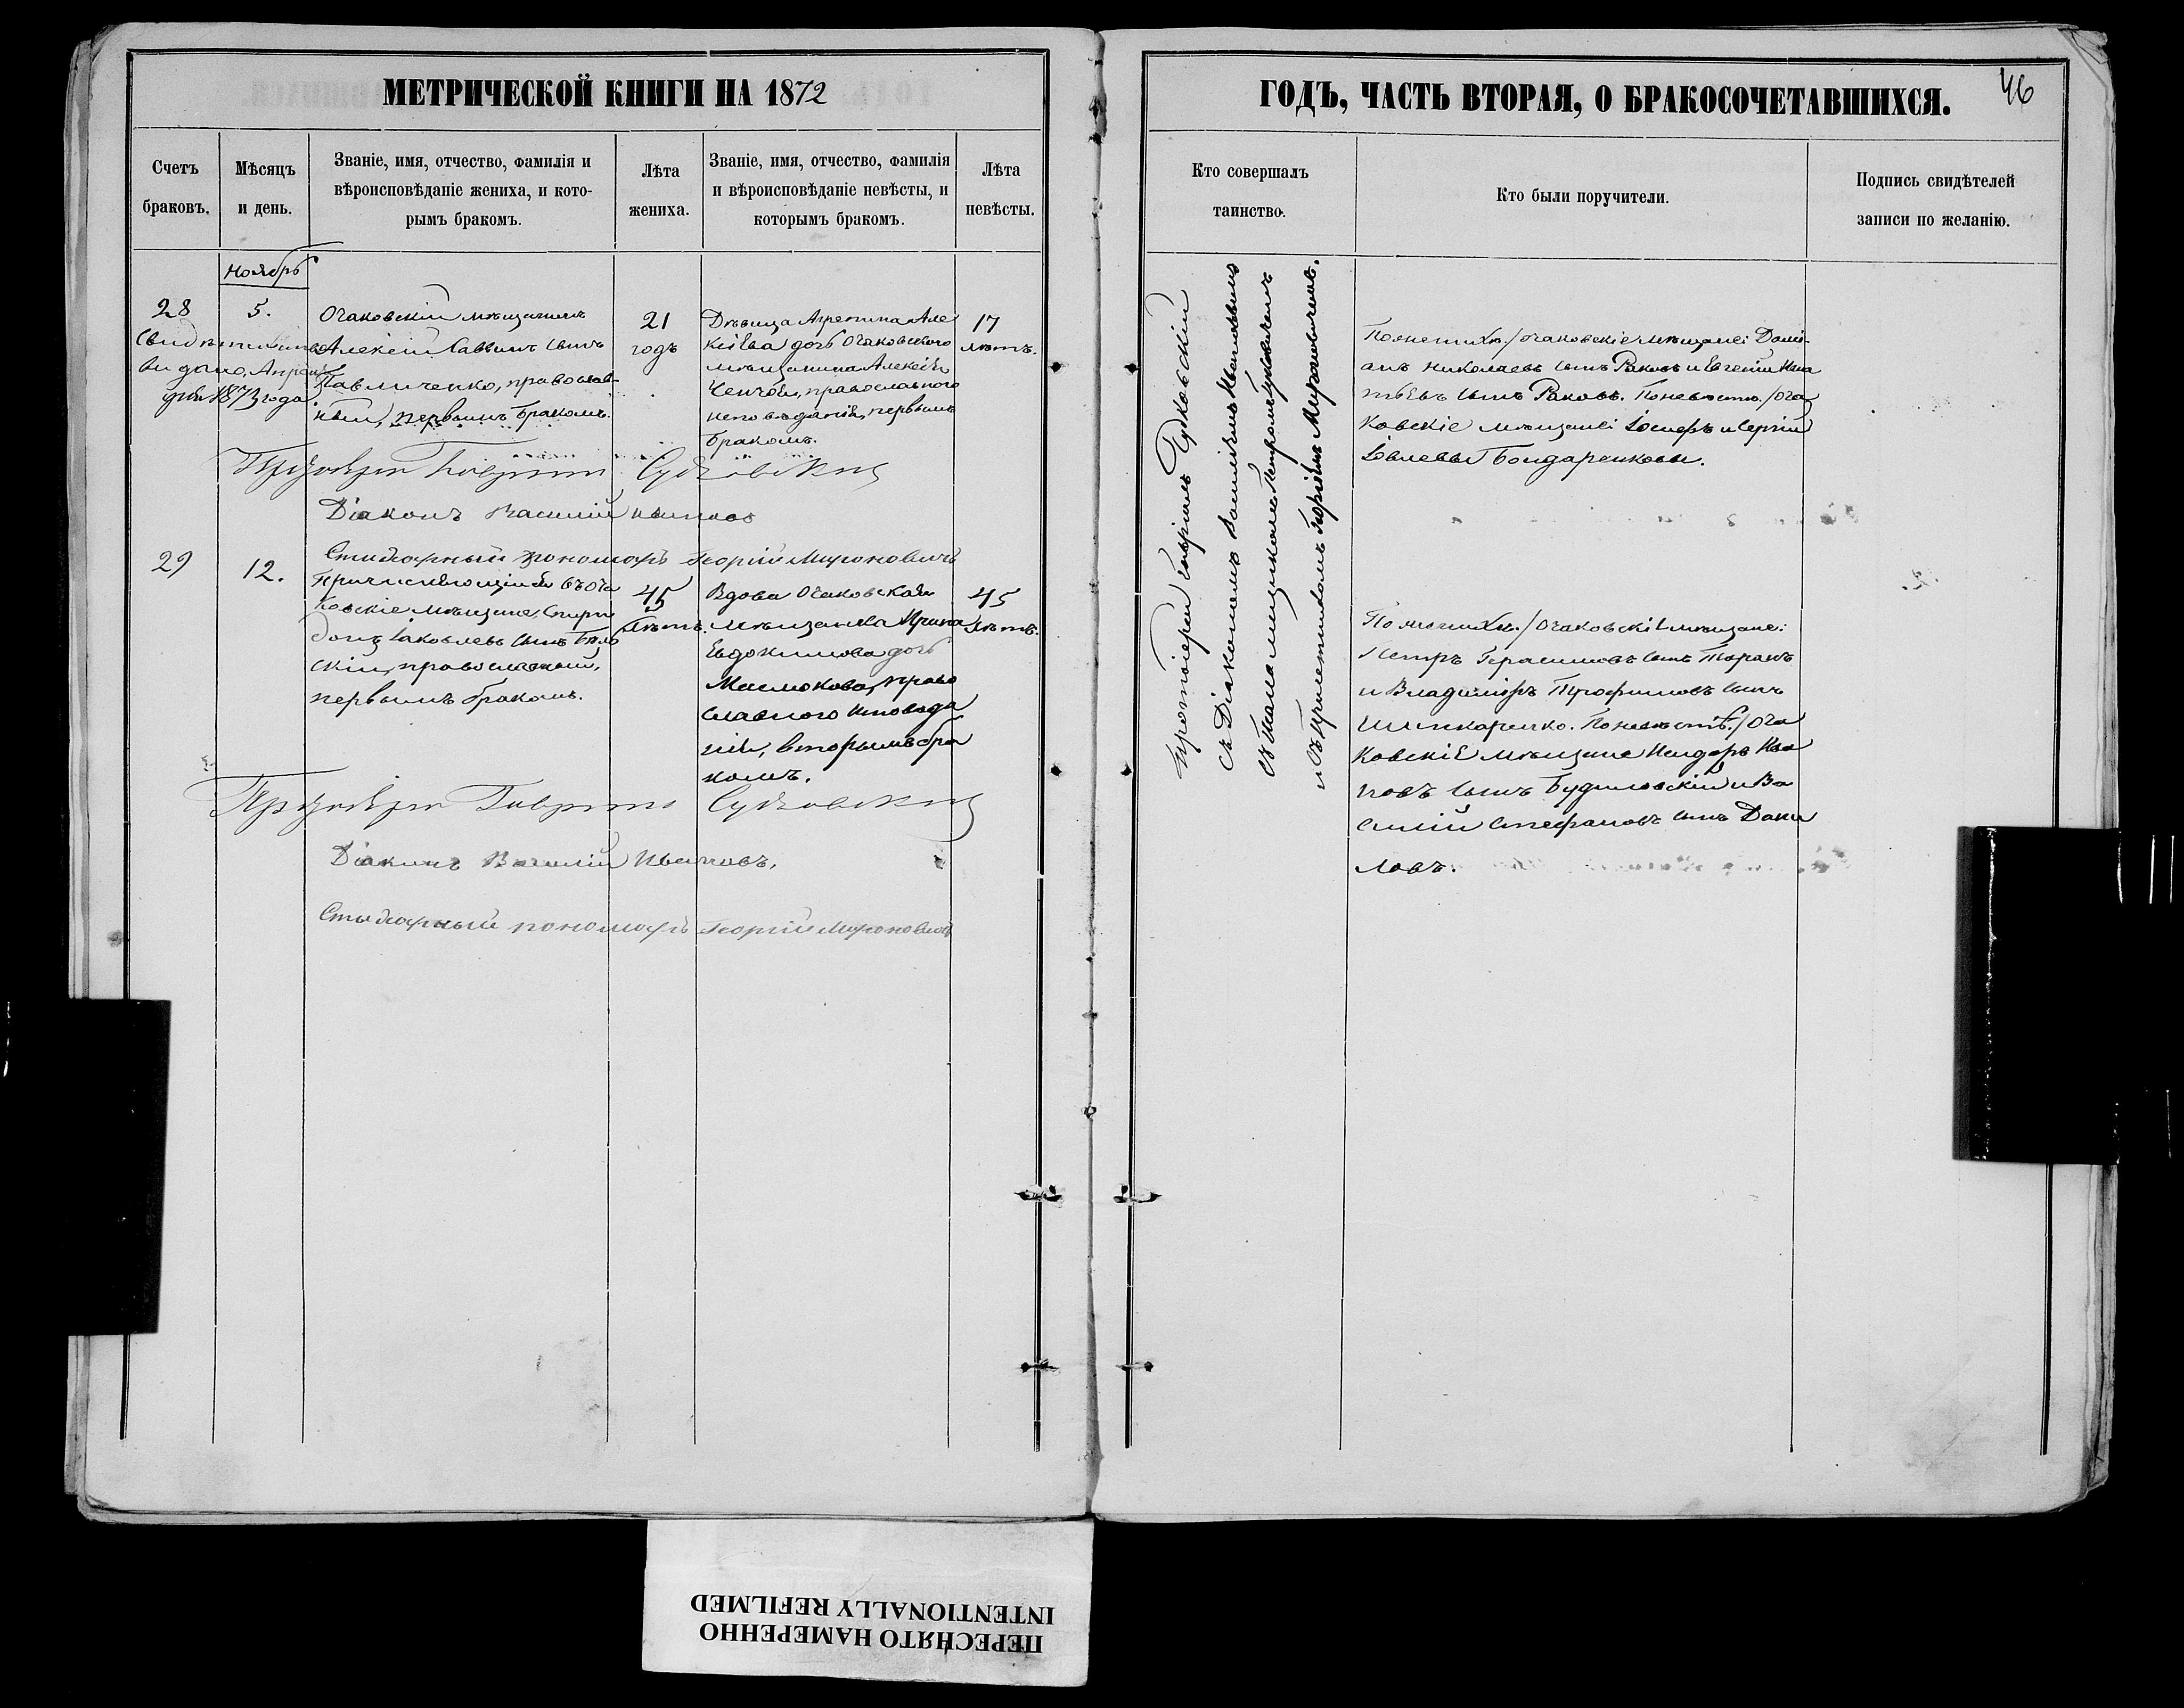 МЕТРИЧЕСКОЙ КНИГИ НА 1872
Счетъ браковъ.
Мѣсяцъ и день.
Званіе, имя, отчество, фамилія и
вѣроисповѣданіе жениха, и кото-
рымъ бракомъ.
Лѣта жениха.
Званіе, имя, отчество, фамилія
и вѣроисповѣданіе невѣсты, и
которымъ бракомъ.
Лѣта невѣсты.
Ноябрь
28
Свидѣтельство
выдано, Апрѣля
дня 1873 года
5.
Очаковскій мѣщанинъ
Алексій Саввинъ сынъ
Павличенко, православ-
ный, первымъ бракомъ.
21
годъ
Дѣвица Агрепина Але
ксіева дочь Очаковскаго
мѣщанина Алексѣя
православнаго
исповѣданія, первымъ
бракомъ.
17
лѣтъ.
Протоіерей Гавріилъ Судковскій
Діаконъ Василій Ивановъ
Стихарный пономарь Георгій Мироновичъ
29
12.
Причисляющійся въ Оча
ковскіе мѣщане, Спири
донъ Іаковлевъ сынъ Бѣль
скій, православный,
первымъ бракомъ.
45
лѣтъ.
Вдова Очаковская
мѣщанка Ирина
Евдокимова дочь
Маслюкова, право
славнаго исповѣда
нія, вторымъ бра
комъ.
45
лѣтъ.
Протоіерей Гавріилъ Судковскій
Діаконъ Василій Ивановъ,
Стихарный пономарь Георгій Мироновичъ
ГОДЪ, ЧАСТЬ ВТОРАЯ, О БРАКОСОЧЕТАВШИХСЯ.
46
Кто совершалъ таинство.
Кто были поручители.
Подпись свидѣтелей
записи по желанію.
Протоіерей Гавріилъ Судковскій
съ Діакономъ Василіемъ Ивановымъ
Петромъ
и съ Причетникомъ Георгіемъ Мироновичемъ.
По женихѣ./Очаковскіе мѣщане: Домі-
анъ Николаевъ сынъ Раковъ и Евгеній Игна
тьевъ сынъ Раковъ. По невѣстѣ./Оча
ковскіе мѣщане: Іосифъ и Сергій
Іовлевы Бондаренковы.
По женихѣ./Очаковскіе мѣщане:
Петръ Герасимовъ сынъ Таранъ
и Владиміръ Трофимовъ сынъ
Шинкаренко. По невѣстѣ./Оча
ковскіе мѣщане Исидоръ Ива
новъ сынъ Будиловскій и Ва
силій Стефановъ сынъ Дани
ловъ.
ПЕРЕСНЯТО НАМЕРЕННО
INTENTIONALLY REFILMED